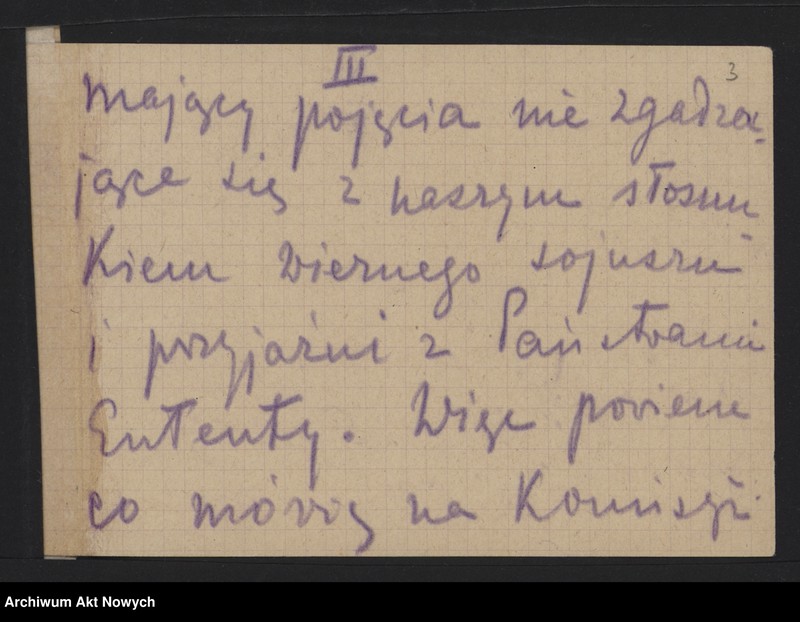 III
3
mający pojęcia nie zgadza-
jące się z naszym stosun-
kiem wiernego sojuszu
i przyjaźni z Państwami
Ententy. Więc powiem
co mówię na Komisyi
Archiwum Akt Nowych